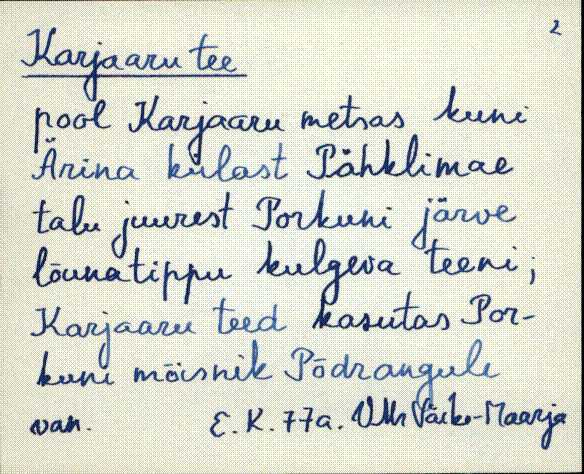 2
Karjaaru tee
pool Karjaaru metsas kuni
Ärina külast Pähklimäe
talu juurest Porkuni järve
lõunatippu kulgeva teeni;
Karjaaru teed kasutas Por-
kuni mõisnik Põdrangule
van. E. K. 77a. VMr Väike-Maarja